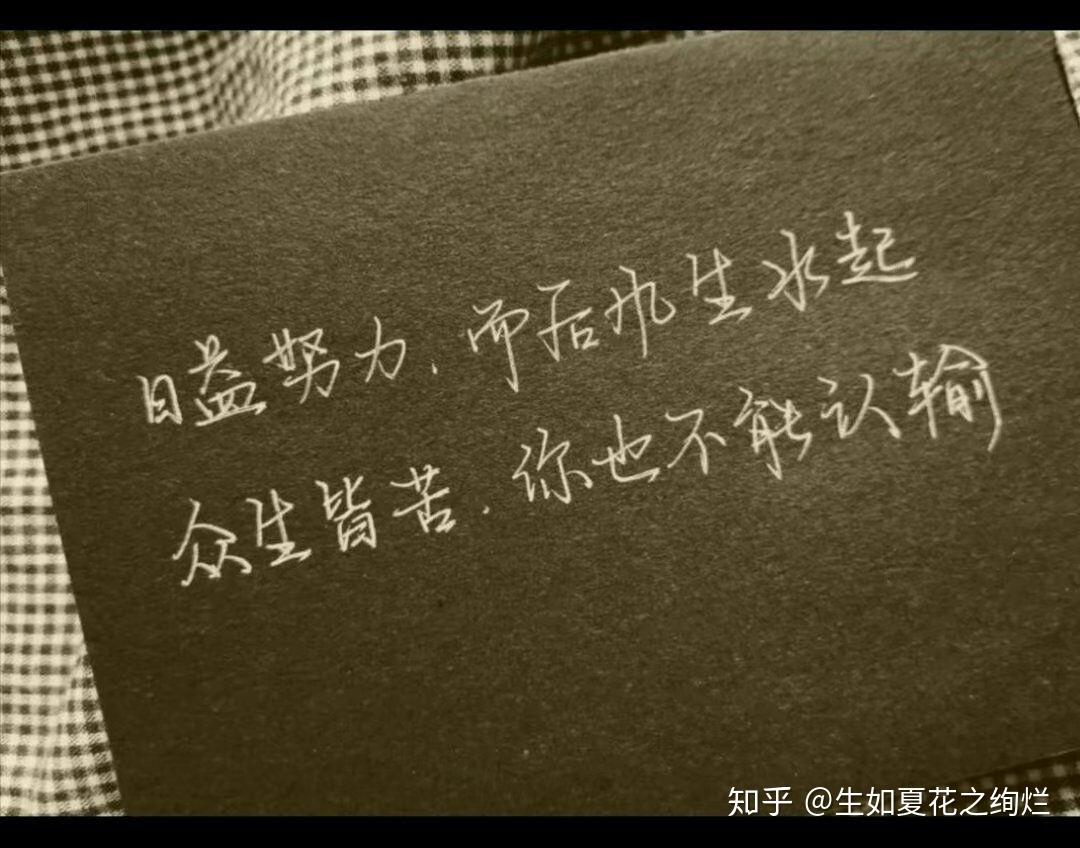 日益努力.而后风生水起
众生皆苦.你也不能认输
知乎 @生如夏花之绚烂